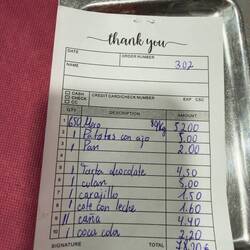 thank you
DATE ORDER NUMBER
302
NAME
CASH
CHECK
CC
CREDIT CARD/CHECK NUMBER EXP CSC
QTY DESCRIPTION AMOUNT
1 650 80€/kg 52.00
2 1 Patatas con ajo 5.00
3 1 Pan 2.00
4
5 1 Tarta chocolate 4,50
6 1 5.00
7 1 carajillo 1.50
8 1 café con leche 1.60
9 11 caña 4.40
10 1 coca cola 2,20
SIGNATURE TOTAL 78.20€